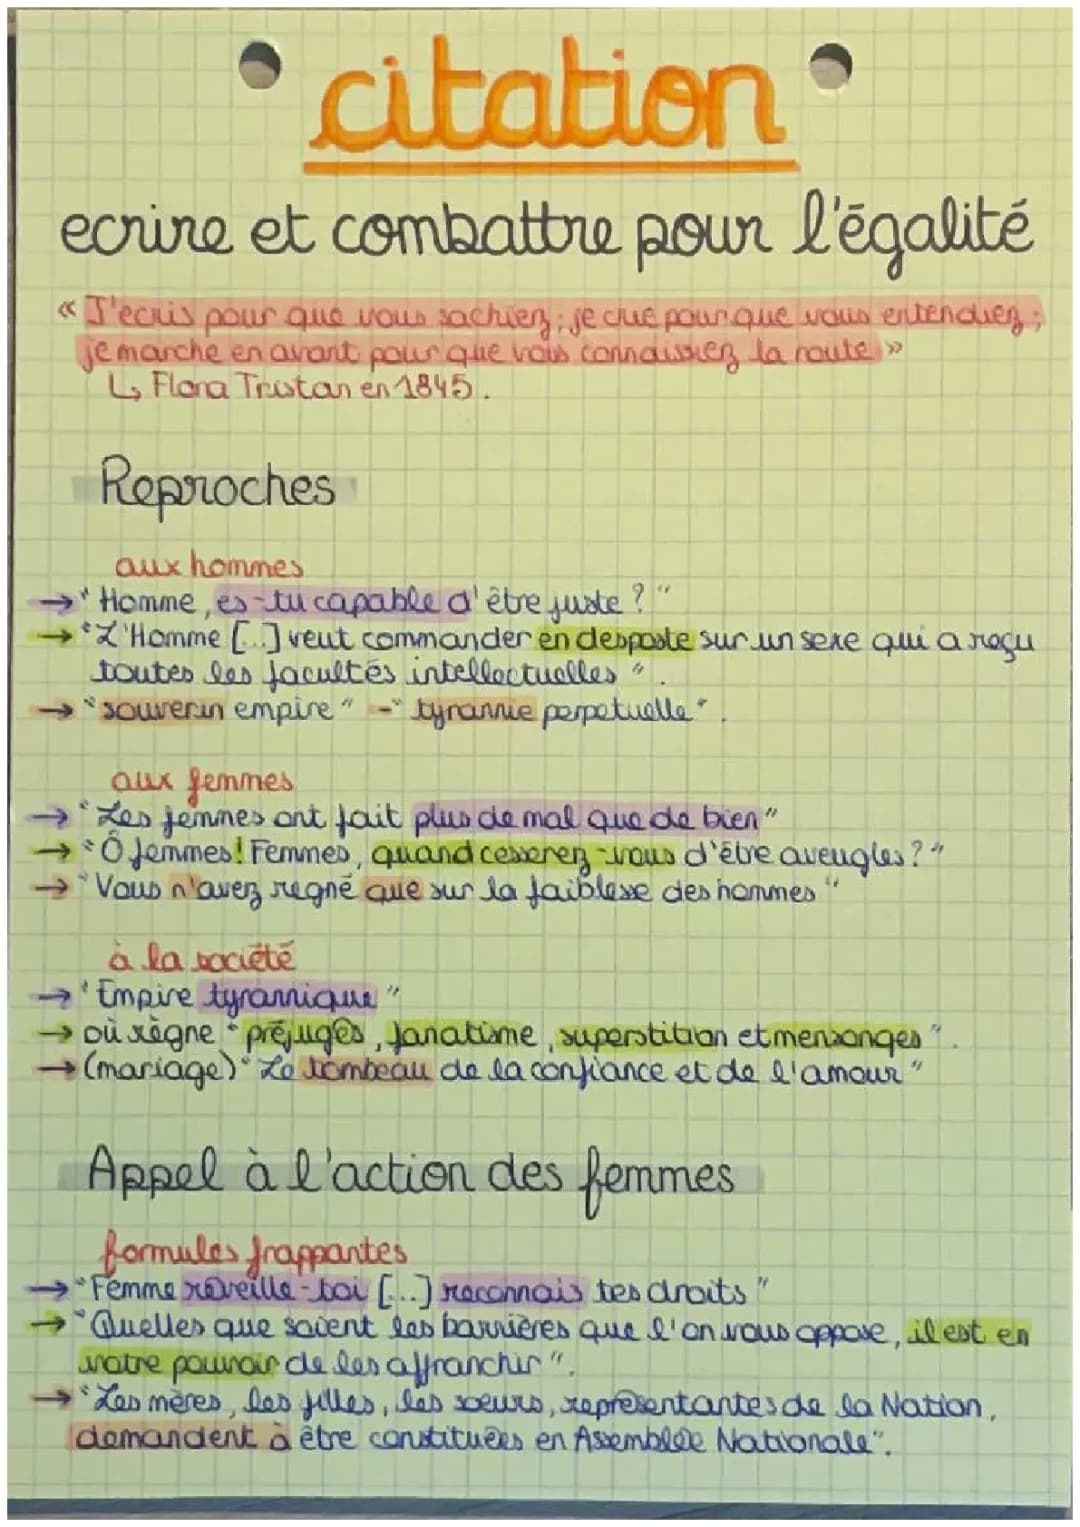 citation
ecrire et combattre pour l'égalité
« J'ecris pour que vous sachiez ; je crie pour que vous entendiez ;
je marche en avant pour que vous connaissiez la route »
↳ Flora Tristan en 1845.
Reproches
aux hommes
→ "Homme, es-tu capable d'être juste ? "
→ "L'Homme [...] veut commander en desposte sur un sexe qui a reçu
toutes les facultés intellectuelles ".
→ "souverin empire" - "tyrannie perpetuelle".
aux femmes
→ "Les femmes ont fait plus de mal que de bien"
→ "Ô femmes! Femmes, quand cesserez-vous d'être aveugles ? "
→ "Vous n'avez regné que sur la faiblesse des hommes "
à la société
→ "Empire tyrannique "
→ où règne "préjugés, fanatisme, superstition et mensonges ".
→ (mariage) "Le tombeau de la confiance et de l'amour "
Appel à l'action des femmes
formules frappantes
→ "Femme réveille-toi [...] reconnais tes droits "
→ "Quelles que soient les barrières que l'on vous oppose, il est en
votre pouvoir de les affranchir ".
→ "Les mères, les filles, les soeurs, représentantes de la Nation,
demandent à être constituées en Assemblée Nationale".